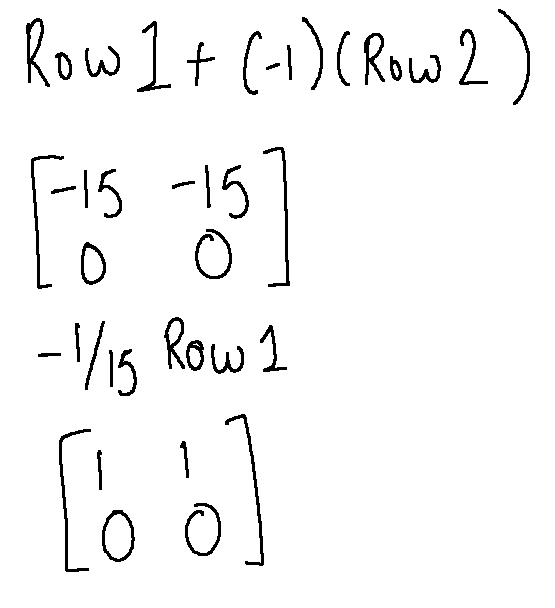 Row 1 + (-1)(Row 2)
[-15 -15]
[0 0]
-1/15 Row 1
[1 1]
[0 0]